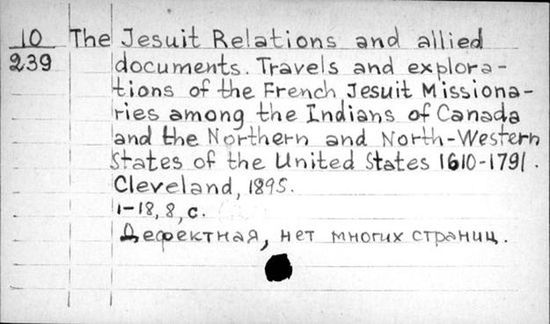 10 The Jesuit Relations and allied
239 documents. Travels and explora-
tions of the French Jesuit Missiona-
ries among the Indians of Canada
and the Northern and North-Western
States of the United States 1610-1791.
Cleveland, 1895.
1-18, 8, с.
Дефектная, нет многих страниц.